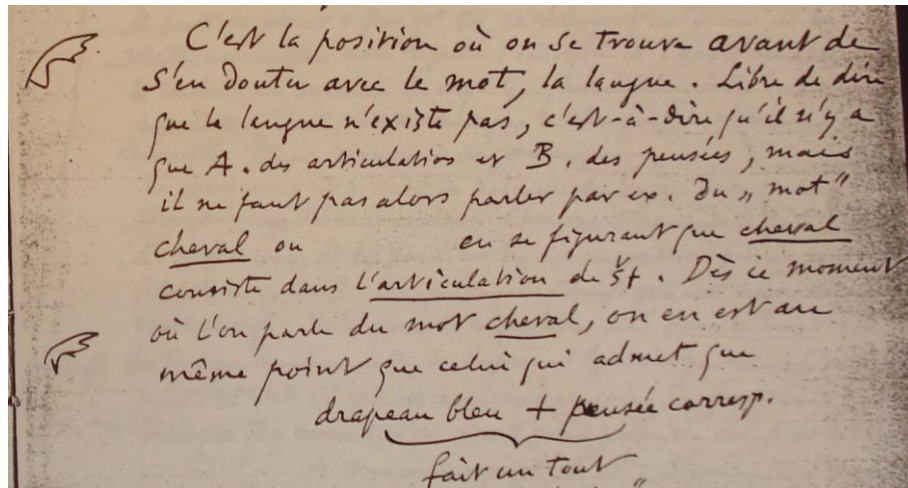 C'est la position où on se trouve avant de
s'en douter avec le mot, la langue. Libre de dire
que la langue n'existe pas, c'est-à-dire qu'il n'y a
que A. des articulations et B. des pensées, mais
il ne faut pas alors parler par ex. du „mot"
cheval ou en se figurant que cheval
consiste dans l'articulation de. Dès ce moment
où l'on parle du mot cheval, on en est au
même point que celui qui admet que
drapeau bleu + pensée corresp.
fait un tout